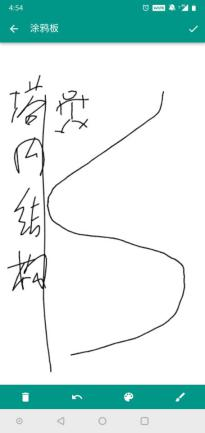 4:54
涂鸦板
塔内结构